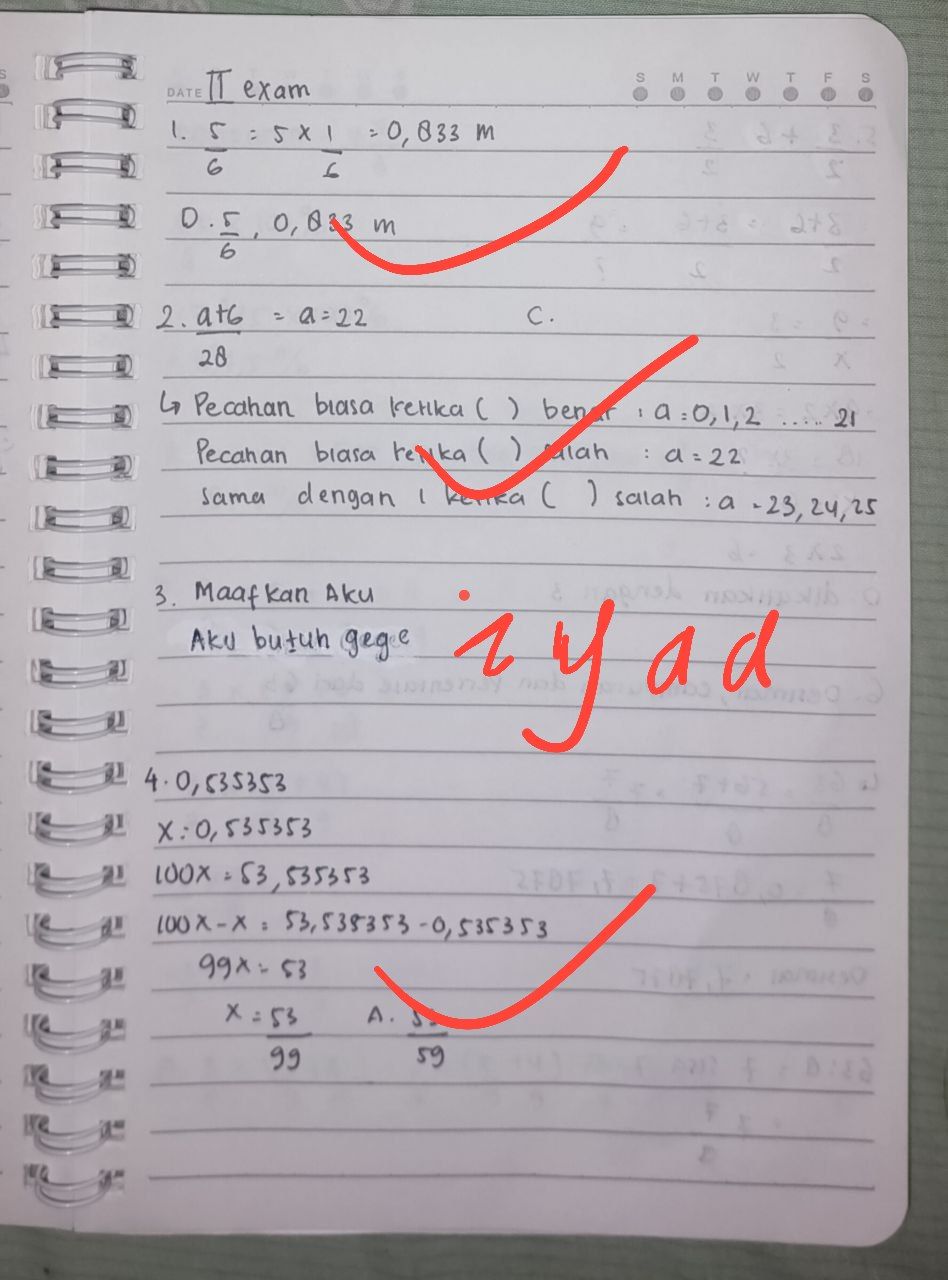 S M T W T F S
DATE II exam
1. 5/6 = 5 x 1/6 = 0,833 m
D. 5/6, 0,833 m
2. a+6/28 = a = 22 C.
↳ Pecahan biasa ketika ( ) benar : a = 0, 1, 2 ..... 21
Pecahan biasa ketika ( ) salah : a = 22
sama dengan 1 ketika ( ) salah : a = 23, 24, 25
3. Maafkan Aku
Aku butuh gege
iyad
4. 0,535353
x = 0,535353
100x = 53,535353
100x - x = 53,535353 - 0,535353
99x = 53
x = 53/99 A. 53/59